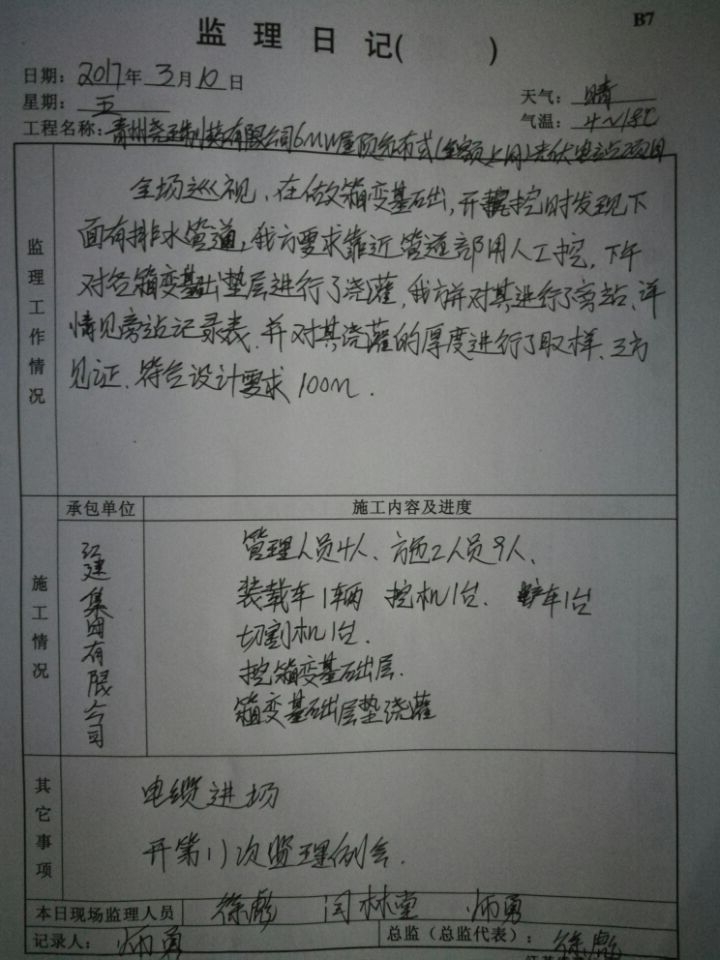 B7
监理日记( )
日期: 2017年3月10日
星期: 五
天气: 晴
气温: 4~18℃
工程名称: 青州尧王制药有限公司6MW屋顶分布式(全额上网)光伏电站项目
监理工作情况
全场巡视、在做箱变基础出,开挖时发现下
面有排水管道,我方要求靠近管道部用人工挖,下午
对各箱变基础垫层进行了浇灌,我方并对其进行了旁站、详
情见旁站记录表、并对其浇灌的厚度进行了取样、三方
见证、符合设计要求100m.
施工情况
承包单位
施工内容及进度
江建集团有限公司
管理人员4人、施工人员9人、
装载车1辆 挖机1台、铲车1台
切割机1台.
挖箱变基础层.
箱变基础层垫浇灌
其它事项
电缆进场
开第11次监理例会.
本日现场监理人员 徐彪 闫林堂 师勇
记录人: 师勇
总监(总监代表): 徐彪